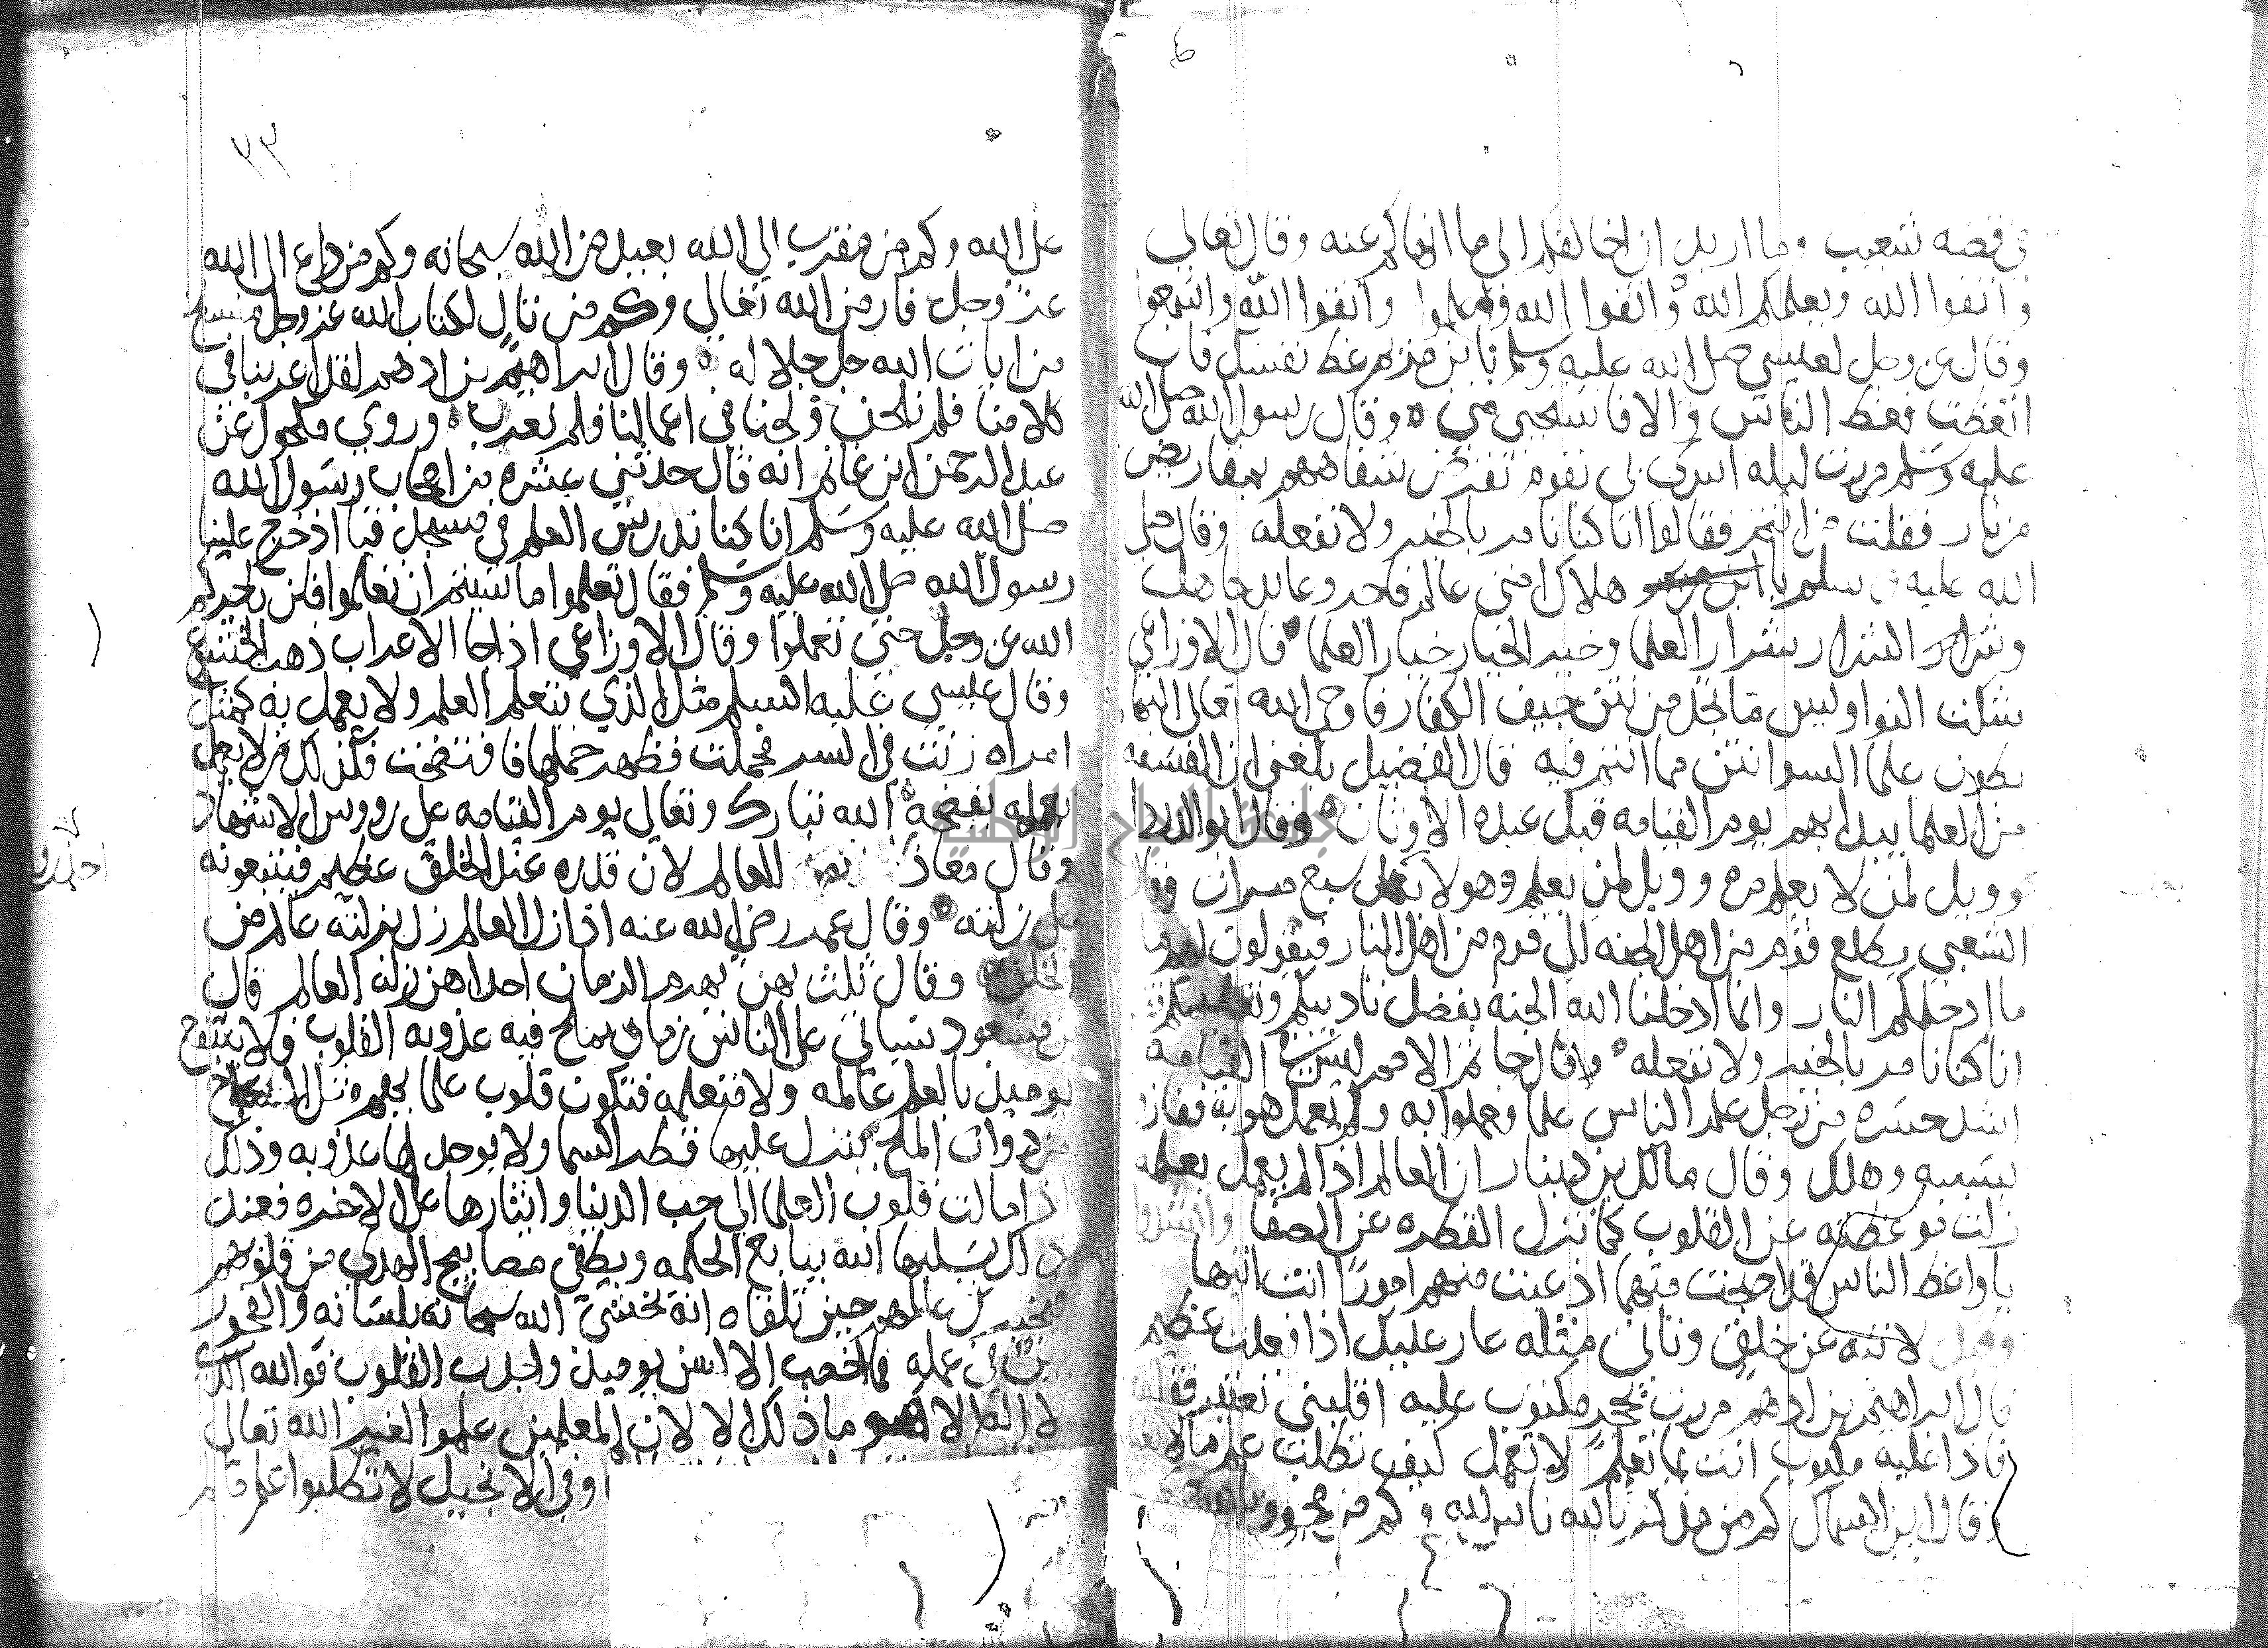 في قصه شعيب وما اريد ان اخالفكم الى ما انهاكم عنه وقال تعالى
واتقوا الله ويعلمكم الله واتقوا الله واعلموا واتقوا الله واسمعوا
وقال عز وجل لعيسى صلى الله عليه وسلم يا بن مريم عظ نفسك فان
اتعظت فعظ الناس والا فاستحيي مني وقال رسول الله صلى الله
عليه وسلم مررت ليله اسري بي بقوم تقرض شفاههم بمقاريض
من نار فقلت من انتم فقالوا انا كنا نامر بالخير ولا نفعله وقال صلى
الله عليه وسلم هلاك امتي عالم فاجر وعابد جاهل
وشرار الشرار شرار العلما وخير الخيار خيار العلما قال الاوزاعي
شكت النواويس ما تجد من نتن جيف الكفار فاوحى الله تعالى اليها
بطون علما السوا نتن مما انتم فيه قال الفضيل بلغني ان الفسقه
من العلما يبدا بهم يوم القيامه قبل عبده الاوثان وقال ابو الدردا
وويل لمن لا يعلم مره وويل لمن يعلم وهو لا يعمل سبع مرات وقال
الشعبي يطلع قوم من اهل الجنه الى قوم من اهل النار فيقولون لهم ما
ما ادخلكم النار وانما ادخلنا الله الجنه بفضل تاديبكم وتعليمكم
انا كنا نامر بالخير ولا نفعله وقال حاتم الاصم ليس في القيامه
اشد حسره من رجل علم الناس علما وعملوا به ولم يعمل هو به ففازوا
بسببه وهلك وقال مالك بن دينار ان العالم اذا لم يعمل بعلمه
زلت موعظته عن القلوب كما تزل القطره عن الصفا وانشدوا
يا واعظ الناس قد اصبحت متهما اذ عبت منهم امورا انت اتيها
وقيل لا تنه عن خلق وتاتي مثله عار عليك اذا فعلت عظيم
قال ابراهيم بن ادهم مررت بحجر مكتوب عليه اقلبني تعتبر فقلبته
فاذا عليه مكتوب انت بما تعلم لا تعمل كيف تطلب علم ما لا تعلم
وقال ابن السماك كم من مذكر بالله ناس لله وكم من مخوف بالله
٣٣
على الله وكم من مقرب الى الله بعيد من الله سبحانه وكم من داع الى الله
عز وجل فار من الله تعالى وكم من تال لكتاب الله عز وجل منسلخ
من ايات الله جل جلاله وقال ابراهيم بن ادهم لقد اعربنا في
كلامنا فلم نلحن ولحنا في اعمالنا فلم نعرب وروي مكحول عن
عبد الرحمن ابن غانم انه قال حدثني عشره من اصحاب رسول الله
صلى الله عليه وسلم انا كنا ندرس العلم في مسجد قبا اذ خرج علينا
رسول الله صلى الله عليه وسلم فقال تعلموا ما شيتم ان تعلموا فلن ياجركم
الله عز وجل حتى تعملوا وقال الاوزاعي اذا جا الاعراب ذهب الخشوع
وقال عيسى عليه السلم مثل الذي يتعلم العلم ولا يعمل به كمثل
امراه زنت في السر فحملت فظهر حملها فافتضحت فكذلك من لا يعمل
بعلمه يفضحه الله تبارك وتعالى يوم القيامه على رووس الاشهاد
وقال معاذ للعالم لان قدره عند الخلق عظيم فيتبعونه
على زلته وقال عمر رضي الله عنه اذا زل العالم زل بزلته عالم من
الخلق وقال ثلث بهن يهدم الزمان احداهن زله العالم قال
بن مسعود سياتي على الناس زمان يملح فيه عذوبه القلوب ولا ينتفع
يوميذ بالعلم عالمه ولا متعلمه فتكون قلوب علمايهم مثل السباخ
من ذوات الملح ينزل عليها قطر السما ولا يوجد لها عذوبه وذلك
اذا مالت قلوب العلما الى حب الدنيا وايثارها على الاخره فعند
ذلك يسلبها الله ينابيع الحكمه ويطفي مصابيح الهدى من قلوبهم
فيخبرك عالمهم حين تلقاه انه يخشى الله سبحانه بلسانه والفجور
بين في عمله فما اخصب الالسن يوميذ واجدب القلوب فوالله الذي
لا اله الا هو ما ذلك الا لان المعلمين علموا لغير الله تعالى
وفي الانجيل لا تطلبوا علم ما لم